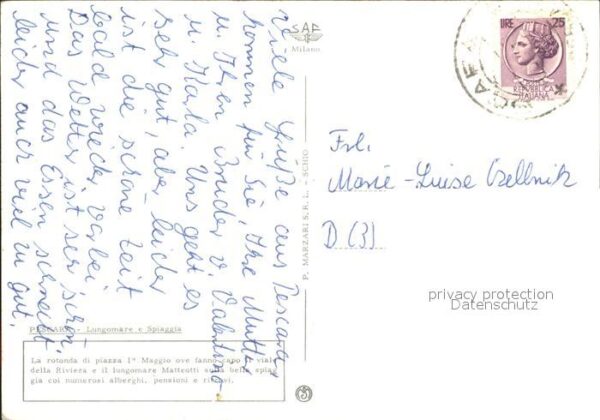 SAF
Milano
Viele Grüße aus Pescara
kommen für Sie, Ihre Mutter
u. Ihren Bruder v. Valentino
u. Karla. Uns geht es
sehr gut, aber leider
ist die schöne Zeit
bald wieder vorbei.
Das Wetter ist sehr schön
und das Essen schmeckt
leider auch viel zu gut.
PESCARA - Lungomare e Spiaggia
La rotonda di piazza 1° Maggio ove fanno capo il viale
della Riviera e il lungomare Matteotti sulla bella spiag-
gia coi numerosi alberghi, pensioni e ritrovi.
P. MARZARI S.R.L. - SCHIO
LIRE 25
REPUBBLICA
ITALIANA
Frl.
Marie-Luise
D (B)
privacy protection
Datenschutz